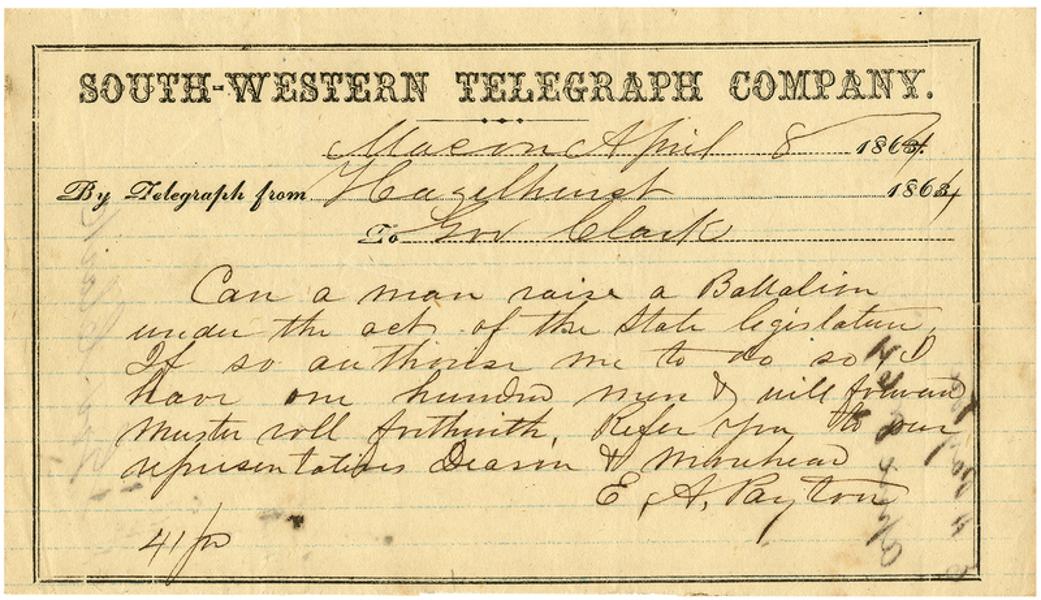 SOUTH-WESTERN TELEGRAPH COMPANY.
Macon April 8 1864
By Telegraph from Hazelhurst 1864
To Gov Clark
Can a man raise a Battalion
under the act of the State legislature,
If so authorise me to do so, I
have one hundred men & will forward
muster roll forthwith, Refer you to our
representatives Deason & Morehead
E, A, Payton
41/